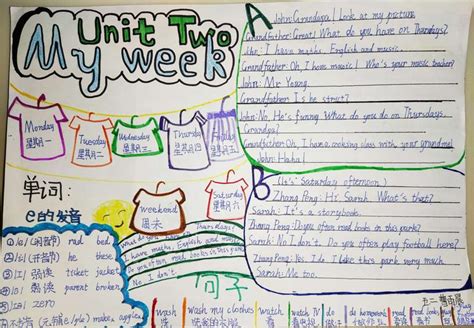 Unit Two
My week
Monday
星期一
Tuesday
星期二
Wednesday
星期三
Thursday
星期四
Friday
星期五
weekend
周末
Saturday
星期六
单词:
e的发音
red bed
he these
弱读 ticket jacket
弱读 parent broken
zero
不发音
apple
What do you have on Thursdays?
I have maths, English and music
Do you often read books in this park?
No, I don't
句子
A
John: Grandpa! Look at my picture
Grandfather: Great! What do you have on Thursdays?
John: I have maths, English and music.
Grandfather: Oh, I have music! Who's your music teacher?
John: Mr Young.
Grandfather: Is he strict?
John: No. He's funny. What do you do on Thursdays
Grandpa?
Grandfather: Oh, I have a cooking class with your grandma!
John: Haha!
B
It's Saturday afternoon
Zhang Peng: Hi, Sarah. What's that?
Sarah: It's a storybook.
Zhang Peng: Do you often read book in this park?
Sarah: No, I don't. Do you often play football here?
Zhang Peng: Yes, I do. I like this park very much.
Sarah: Me too.
wash
wash my clothes
watch
watch TV
do
do homework
read
read books
play
football